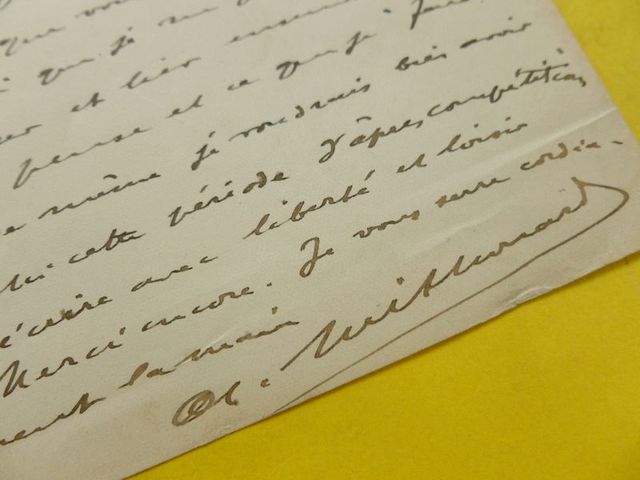 que vous
que je
er et lier
pense et ce que j'
e même je voudrais bien avoir
cette période d'âpres compétitions
écrire avec liberté et loisir
Merci encore. Je vous serre cordia-
ment la main